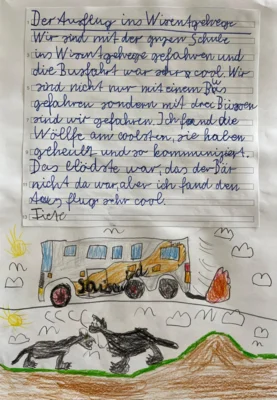 Der Ausflug ins Wisentgehege
Wir sind mit der ganzen Schule
ins Wisentgehege gefahren und
die Busfahrt war sehr cool. Wir
sind nicht nur mit einem Bus
gefahren sondern mit drei Bussen
sind wir gefahren. Ich fand die
Wölfe am coolsten, sie haben
geheult und so kommuniziert.
Das blödste war, das der Bär
nicht da war, aber ich fand den
Ausflug sehr cool.
Fiete